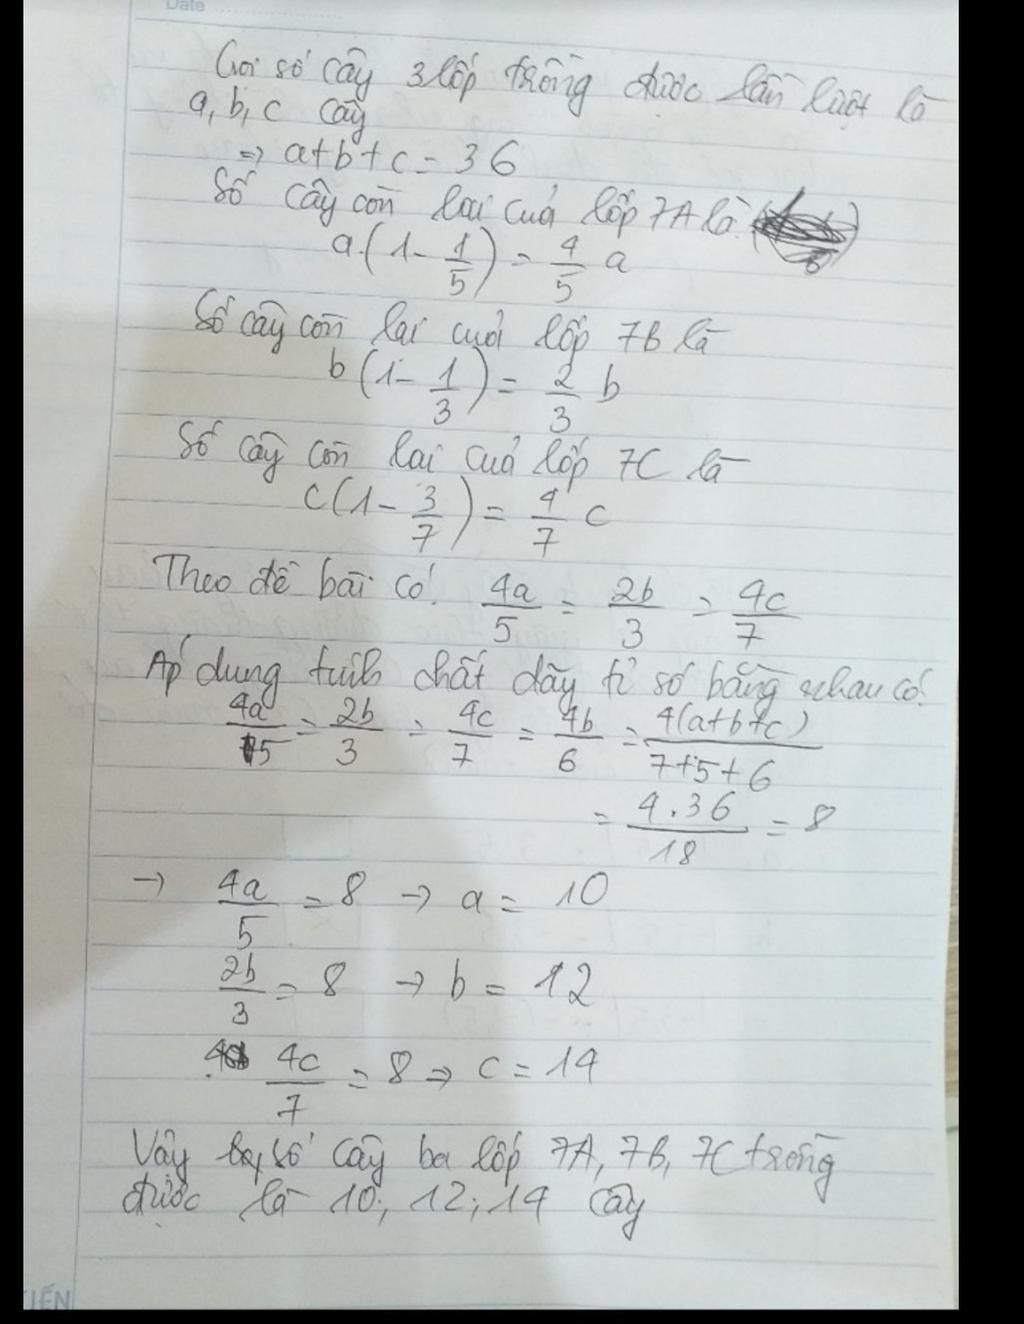 Date
Gọi số cây 3 lớp trồng được lần lượt là
a, b, c cây
=> a+b+c = 36
Số cây còn lại của lớp 7A là
a.(1 - 1/5) = 4/5 a
Số cây còn lại của lớp 7B là
b(1 - 1/3) = 2/3 b
Số cây còn lại của lớp 7C là
c(1 - 3/7) = 4/7 c
Theo đề bài có: 4a/5 = 2b/3 = 4c/7
Áp dụng tính chất dãy tỉ số bằng nhau có:
4a/5 = 2b/3 = 4c/7 = 4b/6 = 4(a+b+c)/7+5+6
= 4.36/18 = 8
→ 4a/5 = 8 → a = 10
2b/3 = 8 → b = 12
4c/7 = 8 => c = 14
Vậy số cây ba lớp 7A, 7B, 7C trồng
được là 10; 12; 14 cây
TIẾN